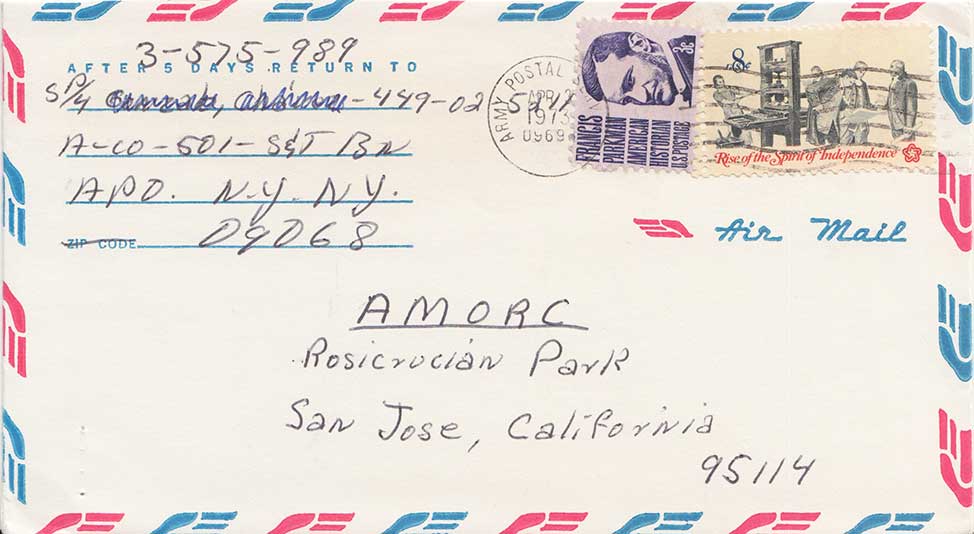 3-575-989
AFTER 5 DAYS RETURN TO
SP/4 -449-02-
A-CO-501-S&T BN
APO. N.Y. N.Y.
ZIP CODE 09068
ARMY POSTAL
APR
1973
FRANCIS
PARKMAN
AMERICAN
HISTORIAN
US POSTAGE
3¢
8¢
US
Rise of the Spirit of Independence
Air Mail
AMORC
Rosicrucian Park
San Jose, California
95114